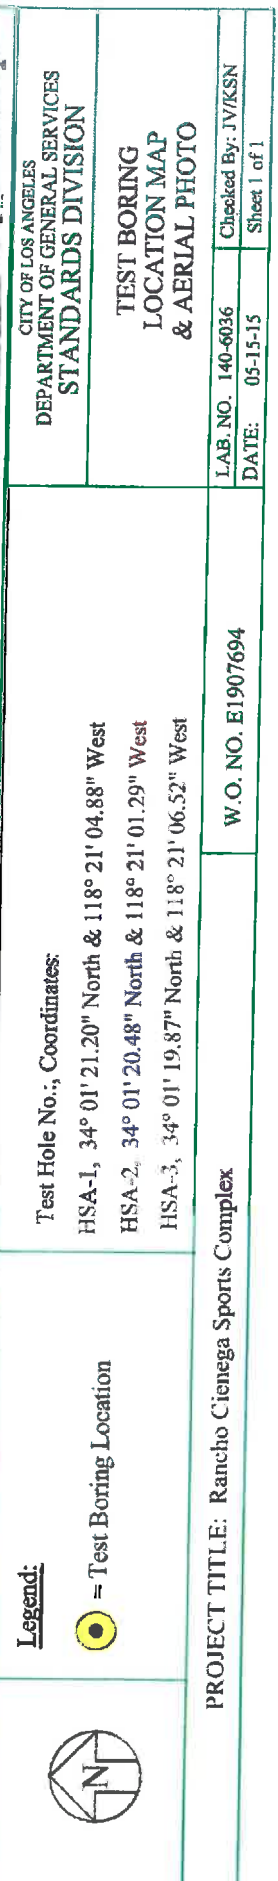 N
Legend:
= Test Boring Location
Test Hole No.:, Coordinates:
HSA-1, 34° 01' 21.20" North & 118° 21' 04.88" West
HSA-2, 34° 01' 20.48" North & 118° 21' 01.29" West
HSA-3, 34° 01' 19.87" North & 118° 21' 06.52" West
CITY OF LOS ANGELES
DEPARTMENT OF GENERAL SERVICES
STANDARDS DIVISION
TEST BORING
LOCATION MAP
& AERIAL PHOTO
PROJECT TITLE: Rancho Cienega Sports Complex
W.O. NO. E1907694
LAB. NO. 140-6036
Checked By: JV/KSN
DATE: 05-15-15
Sheet 1 of 1